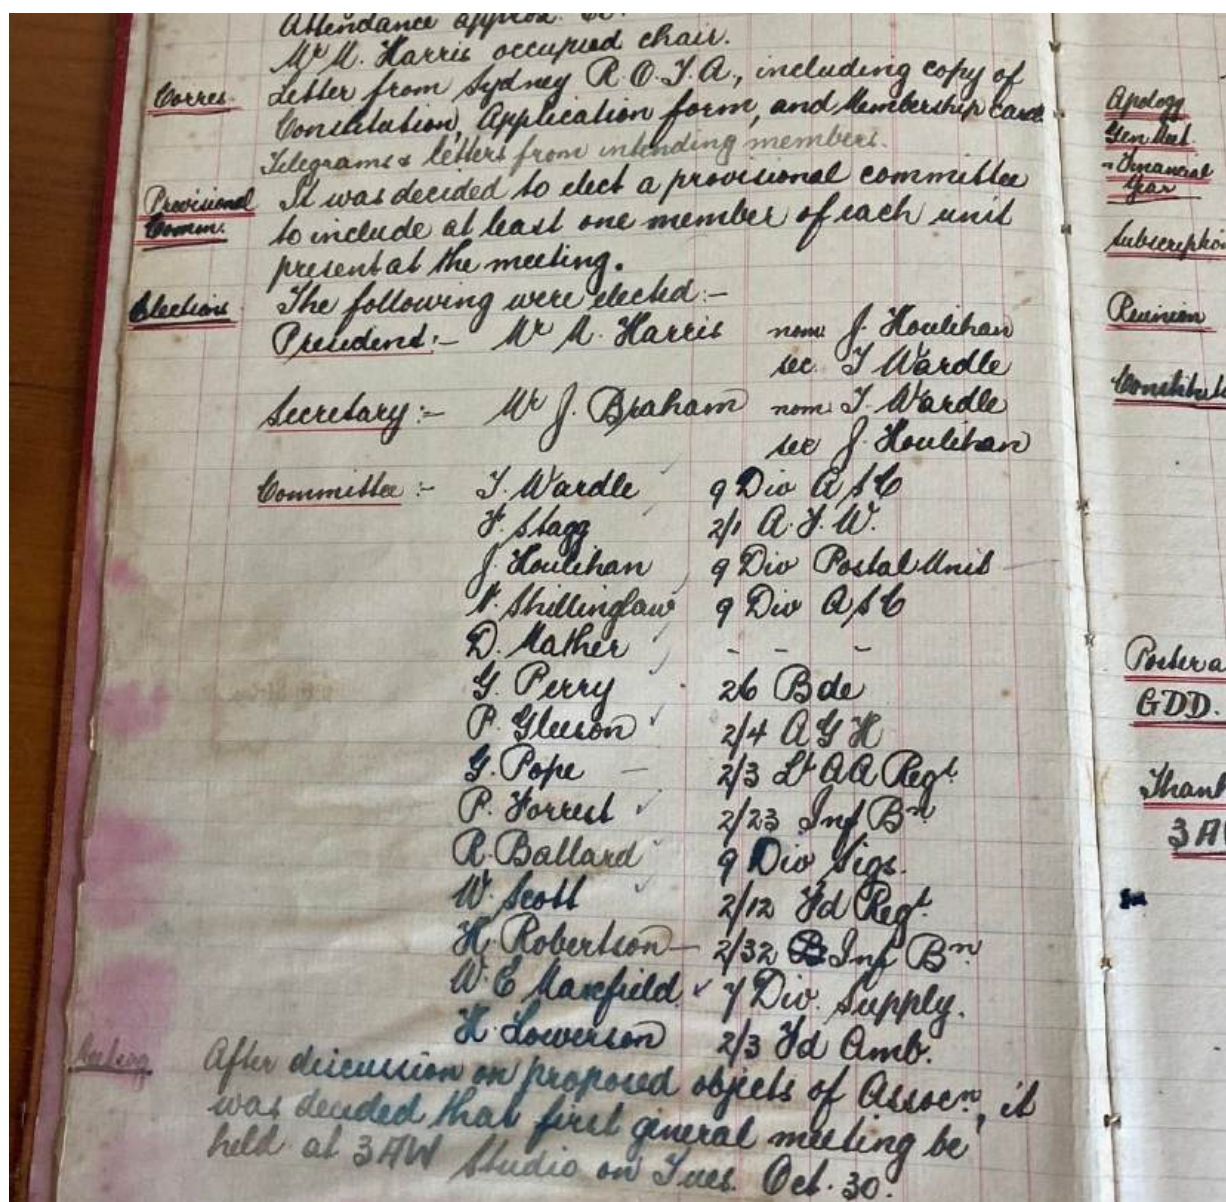 Attendance approx.
Mr M. Harris occupied chair.
Corres. Letter from Sydney R.O.T.A., including copy of
Constitution, Application form, and Membership card.
Telegrams & letters from intending members.
Provisional Comm. It was decided to elect a provisional committee
to include at least one member of each unit
present at the meeting.
Elections The following were elected:-
President:- Mr M. Harris nom. J. Houlihan
sec. T Wardle
Secretary:- Mr J. Braham nom. T. Wardle
sec J. Houlihan
Committee:- T. Wardle 9 Div A S C
F. Stagg 2/1 A.F.W.
J. Houlihan 9 Div Postal Unit
N. Shillinglaw 9 Div A S C
D. Mather - - -
G. Perry 26 Bde
P. Gleeson 2/4 A G H
G. Pope - 2/3 Lt AA Regt.
P. Forrest 2/23 Inf Bn
R. Ballard 9 Div Sigs.
W. Scott 2/12 Fd Regt.
H. Robertson - 2/32 Inf Bn.
W. E Maxfield. 7 Div. Supply.
H. Lowerson 2/3 Fd Amb.
After discussion on proposed objects of Assocn, it
was decided that first general meeting be
held at 3AW Studio on Tues. Oct. 30.
Apology
Gen Meet.
- Financial
Year
Subscription
Reunion
Constitut
Poster a
GDD.
Thank
3 AW